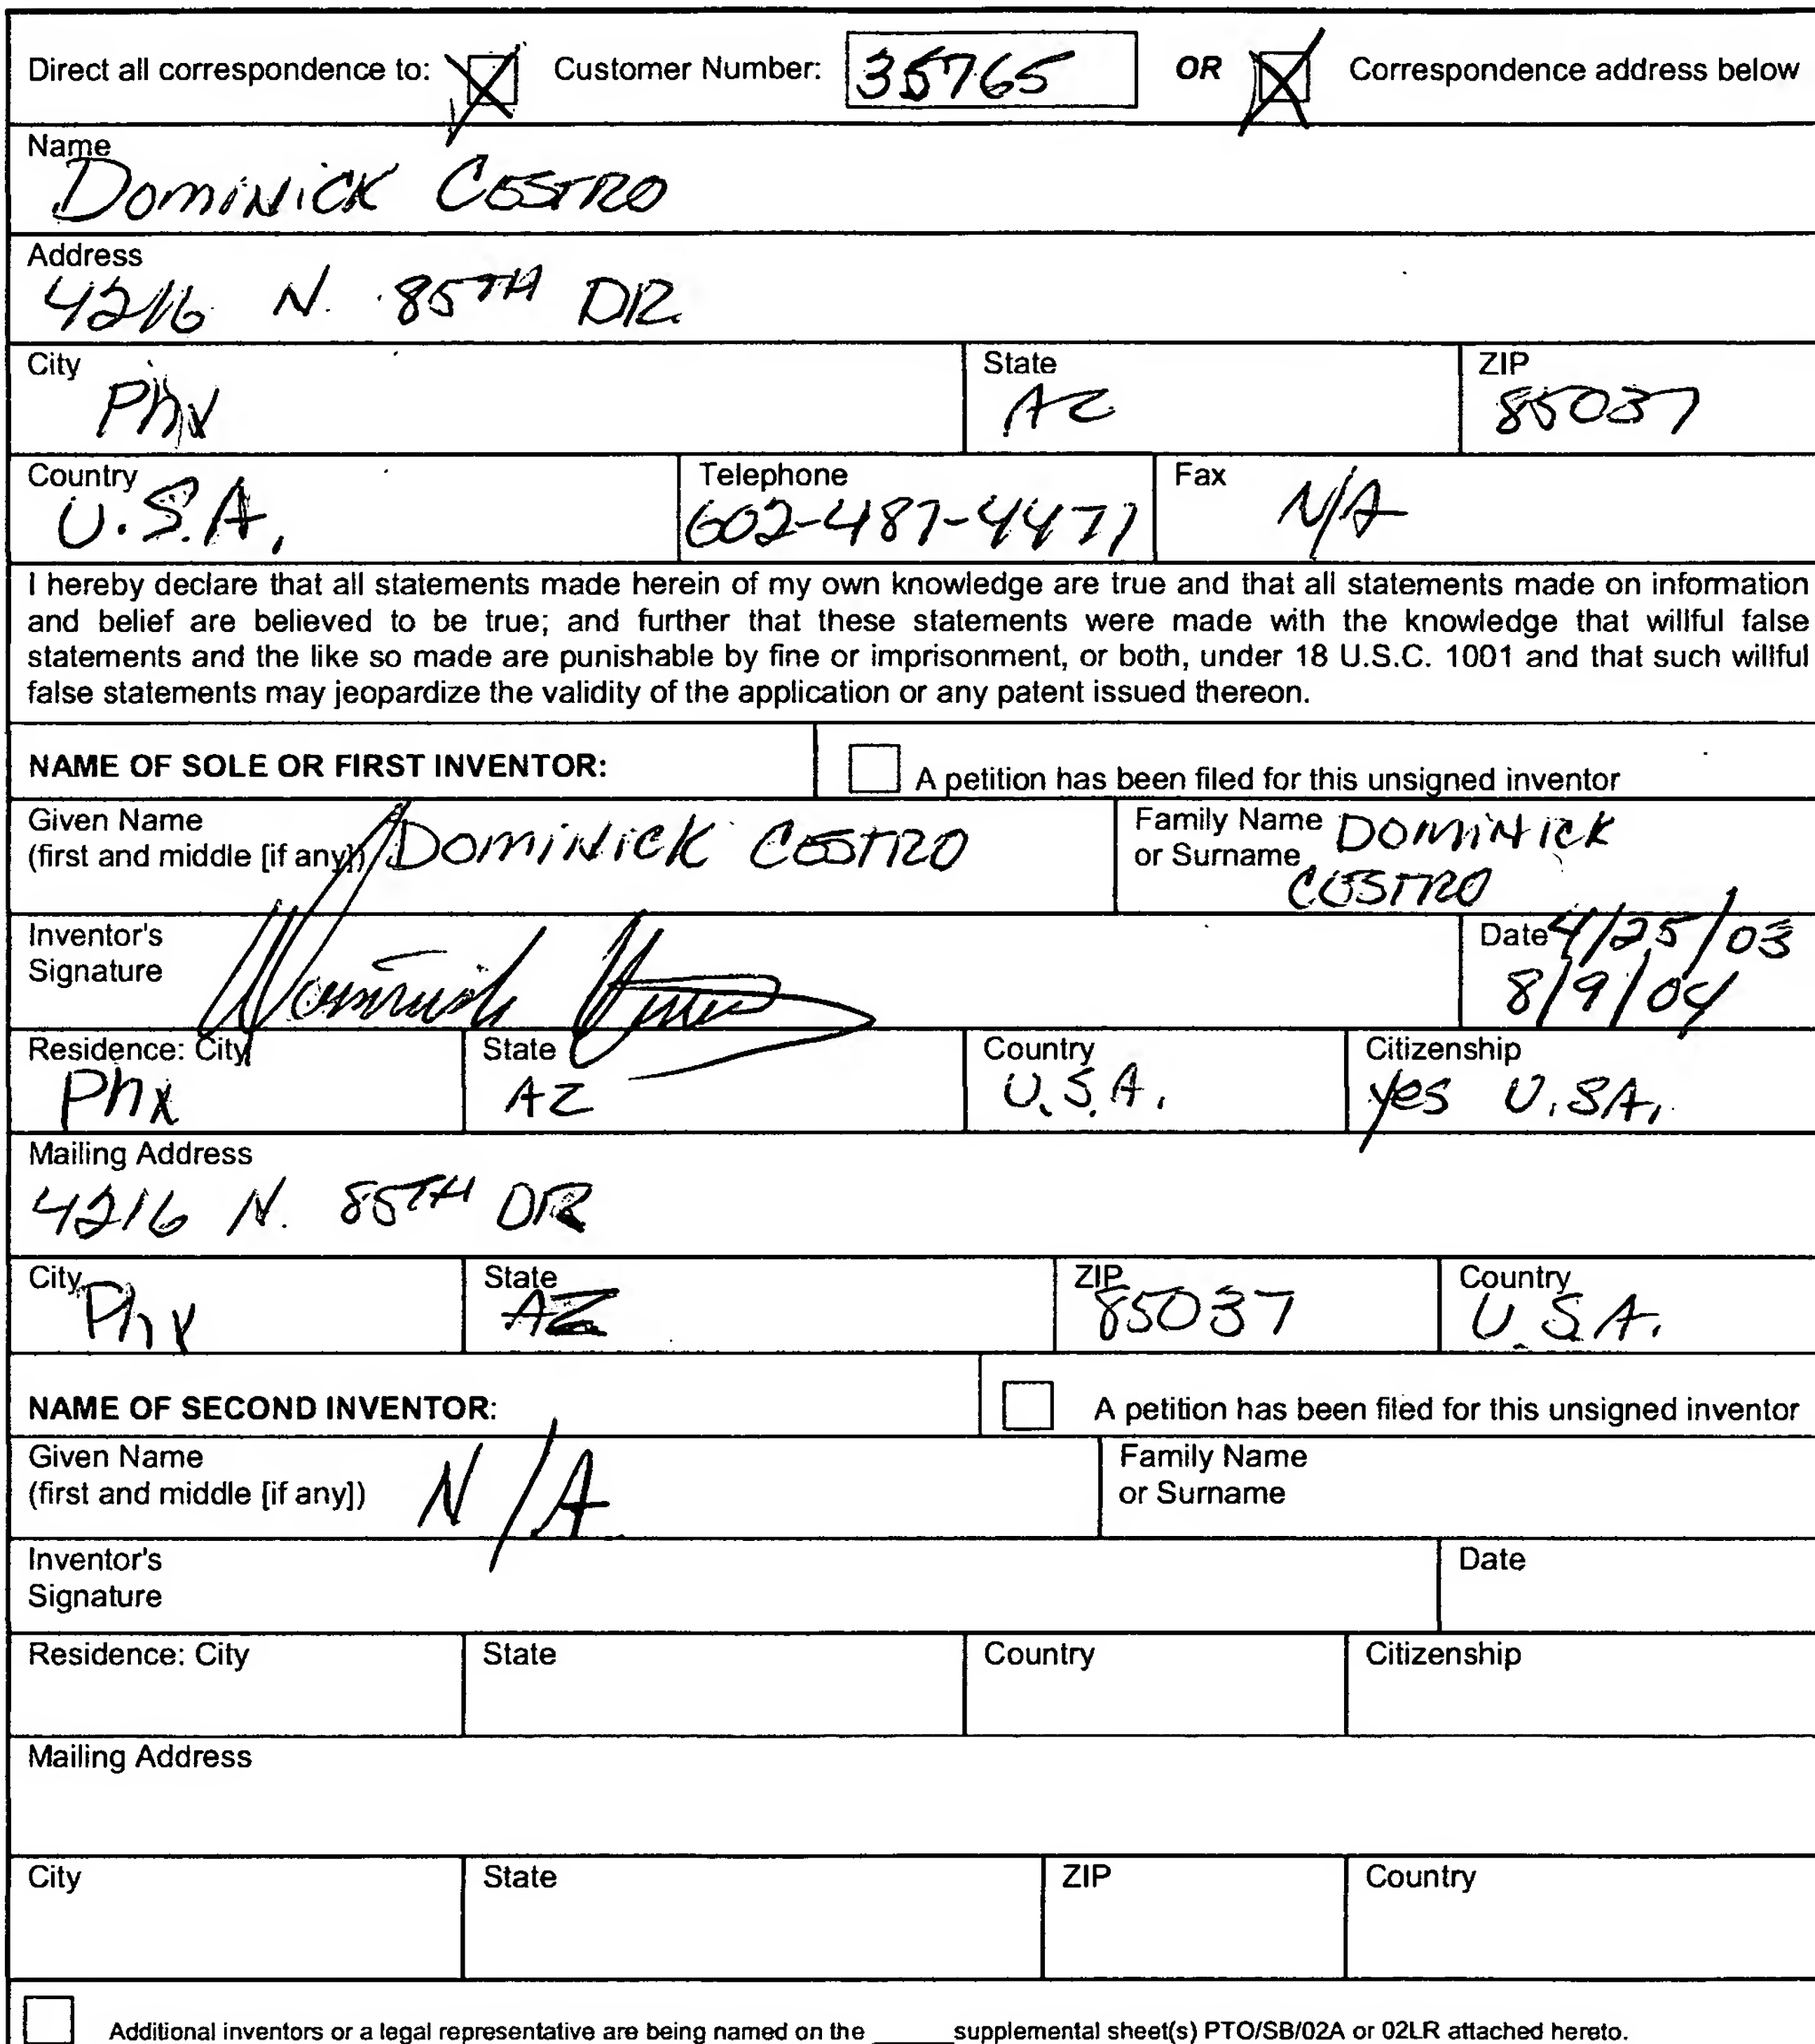 Direct all correspondence to: Customer Number: 35765 OR Correspondence address below
Name
DOMINICK CESTRO
Address
4216 N. 85TH DR
City State ZIP
Phx AZ 85037
Country Telephone Fax
U.S.A. 602-487-4471 N/A
I hereby declare that all statements made herein of my own knowledge are true and that all statements made on information
and belief are believed to be true; and further that these statements were made with the knowledge that willful false
statements and the like so made are punishable by fine or imprisonment, or both, under 18 U.S.C. 1001 and that such willful
false statements may jeopardize the validity of the application or any patent issued thereon.
NAME OF SOLE OR FIRST INVENTOR: A petition has been filed for this unsigned inventor
Given Name
(first and middle [if any]) DOMINICK CESTRO
Family Name DOMINICK
or Surname CESTRO
Inventor's
Signature
Date 4/25/03
8/9/04
Residence: City State Country Citizenship
Phx AZ U.S.A. yes U.SA.
Mailing Address
4216 N. 85TH DR
City State ZIP Country
Phx AZ 85037 U.S.A.
NAME OF SECOND INVENTOR: A petition has been filed for this unsigned inventor
Given Name
(first and middle [if any]) N/A
Family Name
or Surname
Inventor's
Signature
Date
Residence: City State Country Citizenship
Mailing Address
City State ZIP Country
Additional inventors or a legal representative are being named on the ______supplemental sheet(s) PTO/SB/02A or 02LR attached hereto.